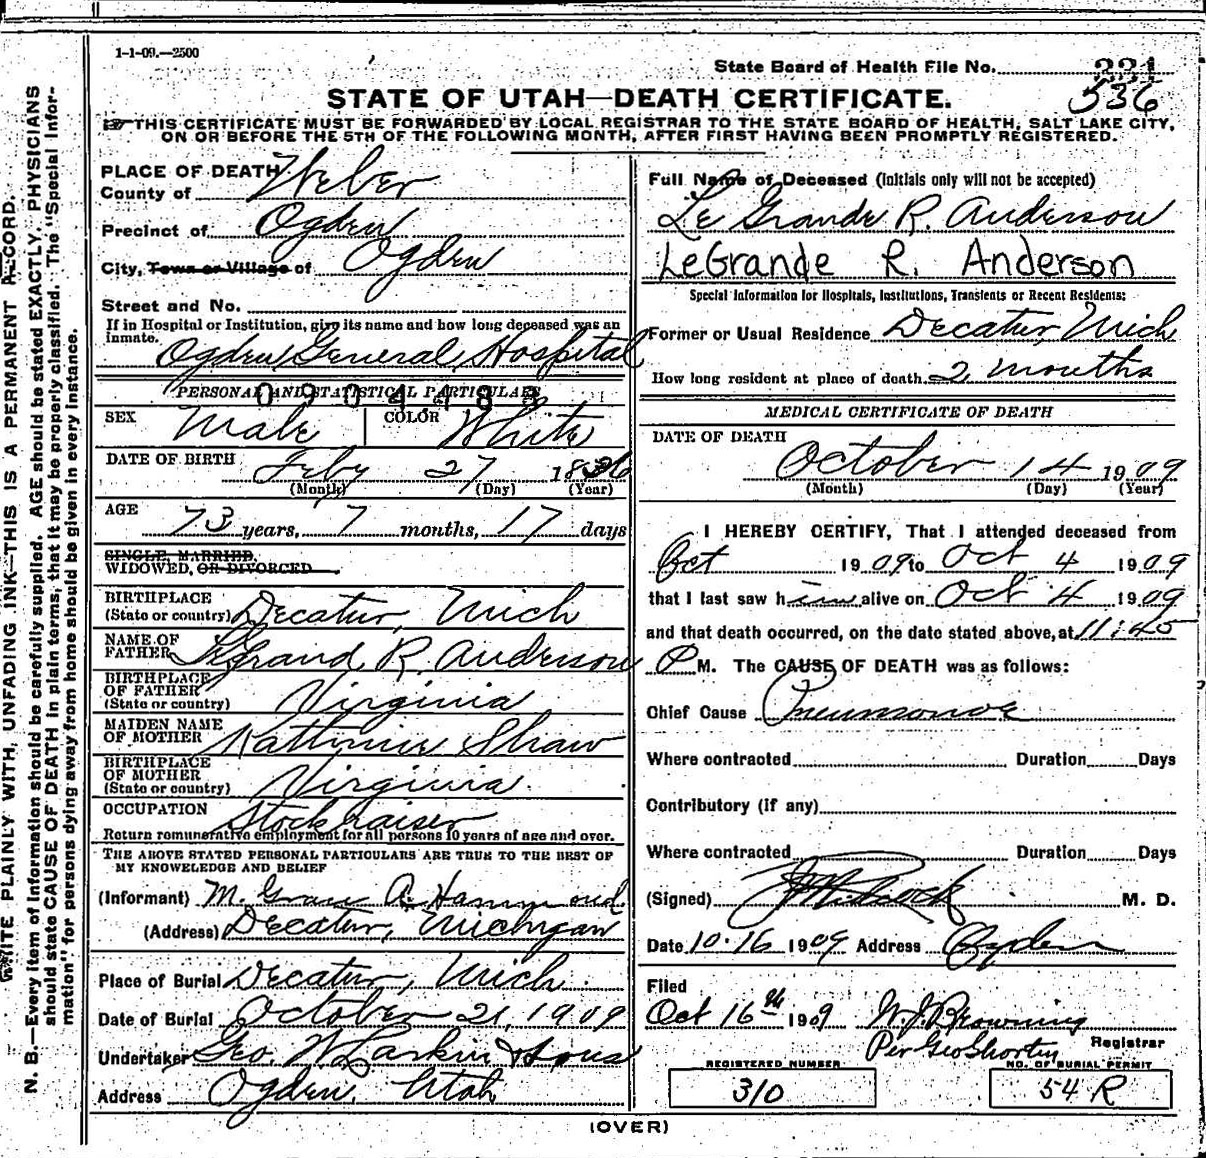 1-1-09.—2500
State Board of Health File No. 221
536
STATE OF UTAH—DEATH CERTIFICATE.
THIS CERTIFICATE MUST BE FORWARDED BY LOCAL REGISTRAR TO THE STATE BOARD OF HEALTH, SALT LAKE CITY,
ON OR BEFORE THE 5TH OF THE FOLLOWING MONTH, AFTER FIRST HAVING BEEN PROMPTLY REGISTERED.
WRITE PLAINLY WITH UNFADING INK—THIS IS A PERMANENT RECORD.
N. B.—Every item of information should be carefully supplied. AGE should be stated EXACTLY. PHYSICIANS
should state CAUSE OF DEATH in plain terms, that it may be properly classified. The "Special Infor-
mation" for persons dying away from home should be given in every instance.
PLACE OF DEATH
County of Weber
Precinct of Ogden
City, Town or Village of Ogden
Street and No.
If in Hospital or Institution, give its name and how long deceased was an
inmate. Ogden General Hospital
PERSONAL AND STATISTICAL PARTICULARS
SEX Male COLOR White
DATE OF BIRTH Feby 27 1836
(Month) (Day) (Year)
AGE 73 years, 7 months, 17 days
SINGLE, MARRIED,
WIDOWED, OR DIVORCED
BIRTHPLACE
(State or country) Decatur, Mich
NAME OF
FATHER LeGrand R. Anderson
BIRTHPLACE
OF FATHER
(State or country) Virginia
MAIDEN NAME
OF MOTHER Katherine Shaw
BIRTHPLACE
OF MOTHER
(State or country) Virginia
OCCUPATION Stock raiser
Return remunerative employment for all persons 10 years of age and over.
THE ABOVE STATED PERSONAL PARTICULARS ARE TRUE TO THE BEST OF
MY KNOWLEDGE AND BELIEF
(Informant) M. Grace A. Hammond
(Address) Decatur, Michigan
Place of Burial Decatur, Mich.
Date of Burial October 21, 1909
Undertaker Geo. W Larkin & Sons
Address Ogden, Utah
Full Name of Deceased (Initials only will not be accepted)
Le Grande R. Anderson
LeGrande R. Anderson
Special Information for Hospitals, Institutions, Transients or Recent Residents:
Former or Usual Residence Decatur, Mich
How long resident at place of death 2 months
MEDICAL CERTIFICATE OF DEATH
DATE OF DEATH
October 14 1909
(Month) (Day) (Year)
I HEREBY CERTIFY, That I attended deceased from
Oct 1909 to Oct 4 1909
that I last saw him alive on Oct 4 1909
and that death occurred, on the date stated above, at 11:45
P M. The CAUSE OF DEATH was as follows:
Chief Cause Pneumonia
Where contracted Duration Days
Contributory (if any)
Where contracted Duration Days
(Signed) M. D.
Date 10-16 1909 Address Ogden
Filed
Oct 16th 1909 W. J. Browning
Per Geo Shorten Registrar
REGISTERED NUMBER NO. OF BURIAL PERMIT
310 54 R
(OVER)